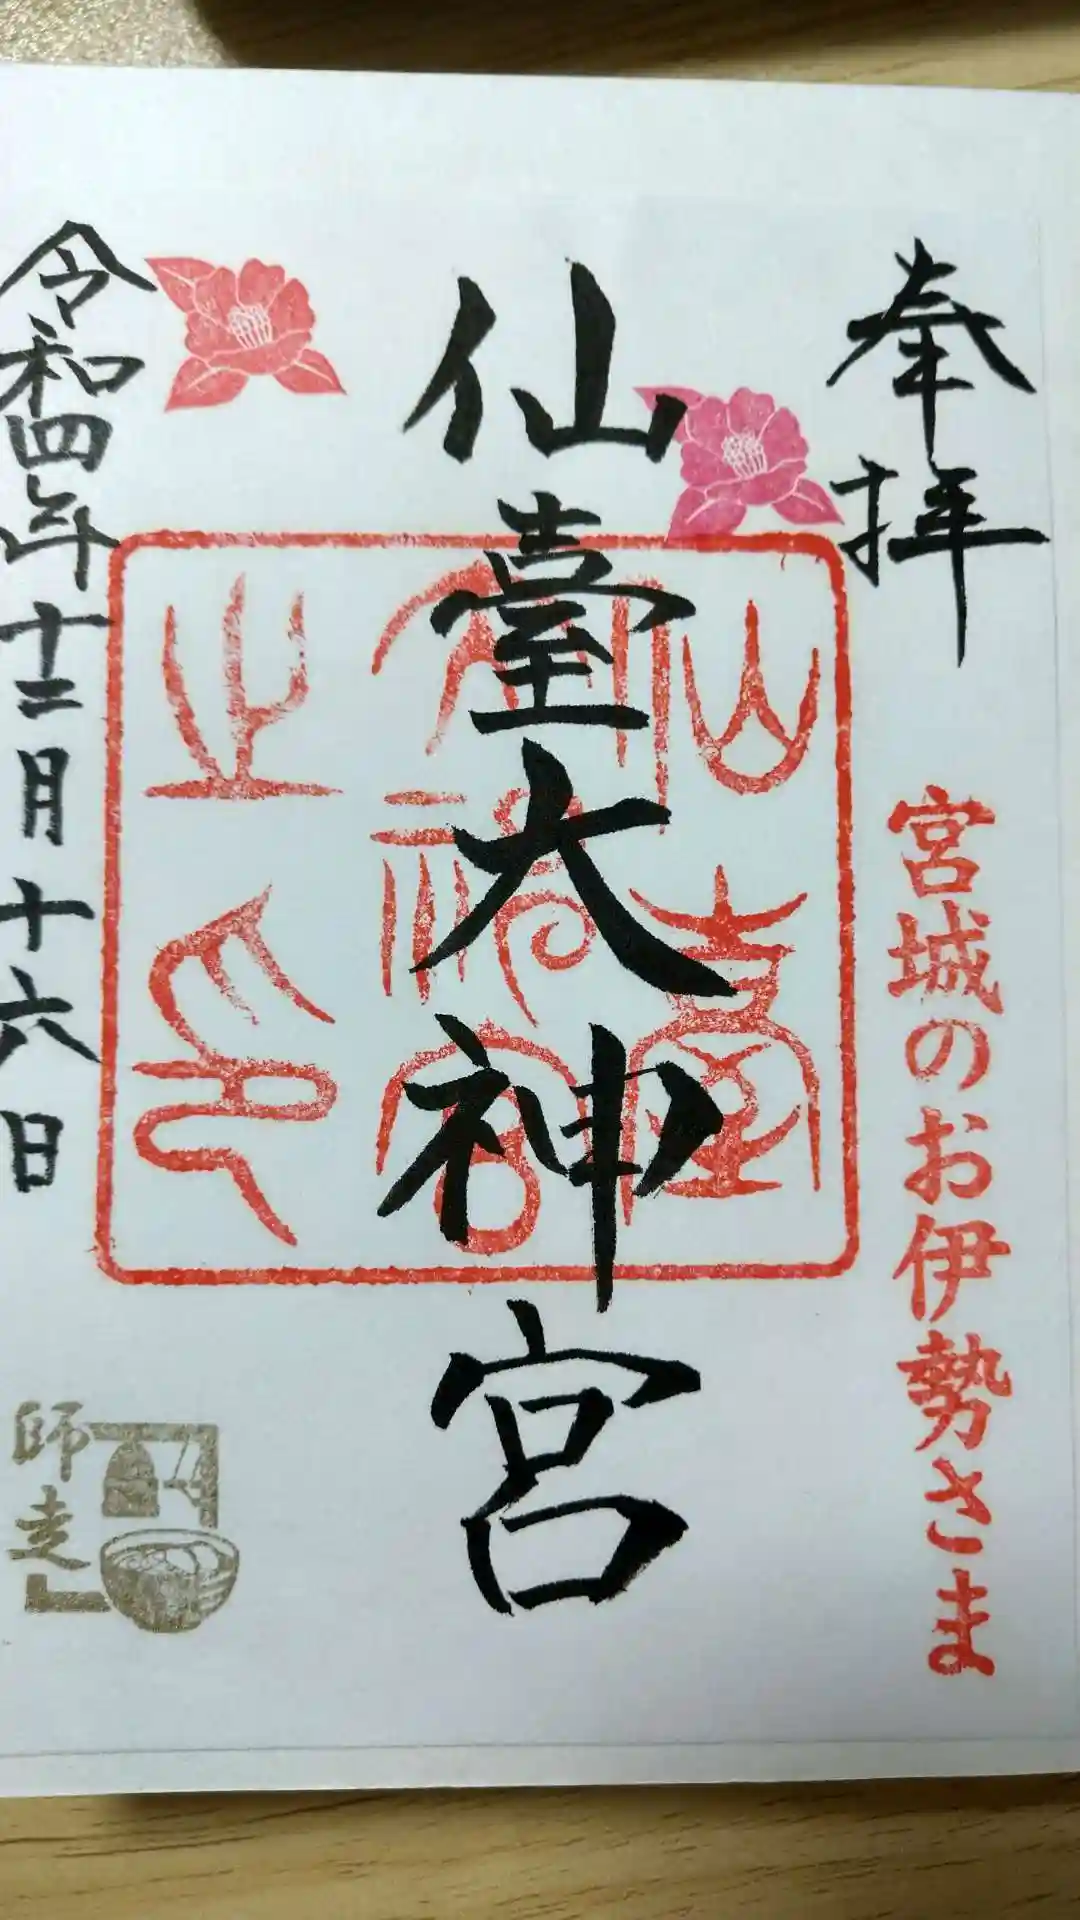 奉拝
宮城のお伊勢さま
仙臺大神宮
仙臺大神宮之印
令和四年十二月十六日
師走